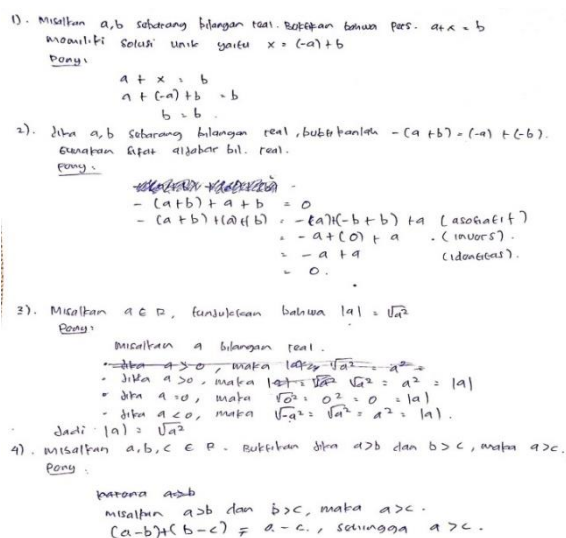 1). Misalkan a,b sebarang bilangan real. Buktikan bahwa pers. a+x = b
memiliki solusi unik yaitu x = (-a)+b
Peny:
a + x = b
a + (-a)+b = b
b = b.
2). Jika a,b sebarang bilangan real, buktikanlah -(a+b) = (-a) + (-b).
Gunakan sifat aljabar bil. real.
Peny:
-(a+b) + a + b = 0
-(a+b)+(a)+(b) = -(a)+(-b+b) +a (asosiatif)
= -a+(0) + a . (invers).
= -a +a (identitas).
= 0.
3). Misalkan a ∈ R, tunjukkan bahwa |a| = √a²
Peny:
Misalkan a bilangan real.
• Jika a >0, maka √a² = a² = |a|
• Jika a =0, maka √0² = 0² = 0 = |a|
• Jika a <0, maka √-a² = √a² = a² = |a|.
Jadi |a| = √a²
4). Misalkan a,b,c ∈ R. Buktikan jika a>b dan b>c, maka a>c.
Peny:
misalkan a>b dan b>c, maka a>c.
(a-b)+(b-c) = a-c., sehingga a>c.